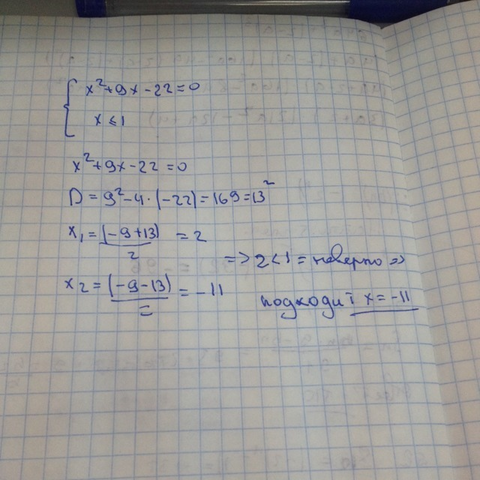 x²+9x-22=0
x≤1
x²+9x-22=0
D=9²-4·(-22)=169=13²
x₁=(-9+13)/2=2
=>2<1=неверно=>
x₂=(-9-13)/2=-11
подходит x=-11